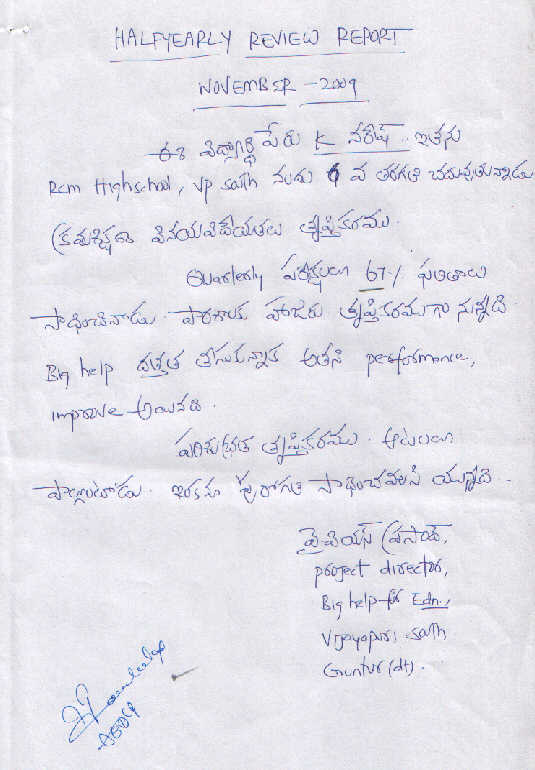 HALFYEARLY REVIEW REPORT
NOVEMBER - 2009
ఈ విద్యార్థి పేరు K నరేష్. ఇతను
Rcm Highschool, VP South నందు 6 వ తరగతి చదువుతున్నాడు
క్రమశిక్షణ వినయవిధేయతలు తృప్తికరము.
Quarterly పరీక్షలలో 67% ఫలితాలు
సాధించినాడు. పాఠశాలకు హాజరు తృప్తికరముగా నున్నది.
Big help దత్తత తీసుకున్నాక అతని performance,
improve అయినది.
పరిశుభ్రత తృప్తికరము. ఆటలలో
పాల్గొంటాడు. ఇంకనూ పురోగతి సాధించవలసి యున్నది.
ప్రసాద్,
project director,
Big help for Edn.,
Vijayapuri south
Guntur (dt).